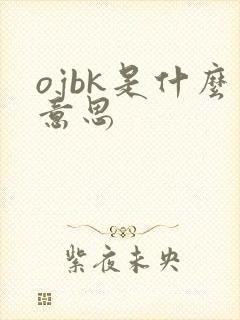 ojbk是什麼
意思
紫夜未央